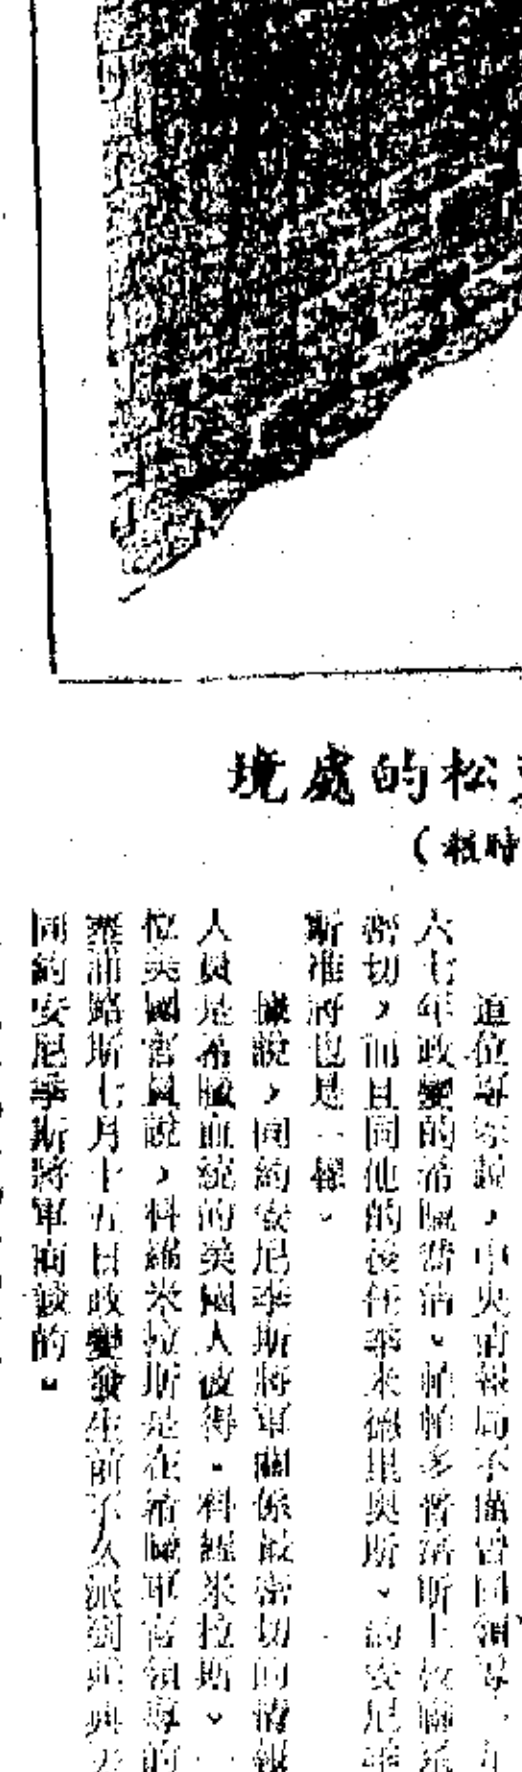 的松
處境
時報）
這位專家說，中央情報局不僅曾同領導一九
六七年政變的希臘喬治、帕帕多普洛斯上校聯系
密切，而且同他的後任季米德里奧斯、約安尼季
斯准將也是一樣。
據說，同約安尼季斯將軍關係最密切的情報
人員是希臘血統的美國人彼得．科羅米拉斯。一
位美國官員說，科羅米拉斯是在希臘軍官領導的
塞浦路斯七月十五日政變發生前不久派到雅典去
同約安尼季斯將軍商談的。